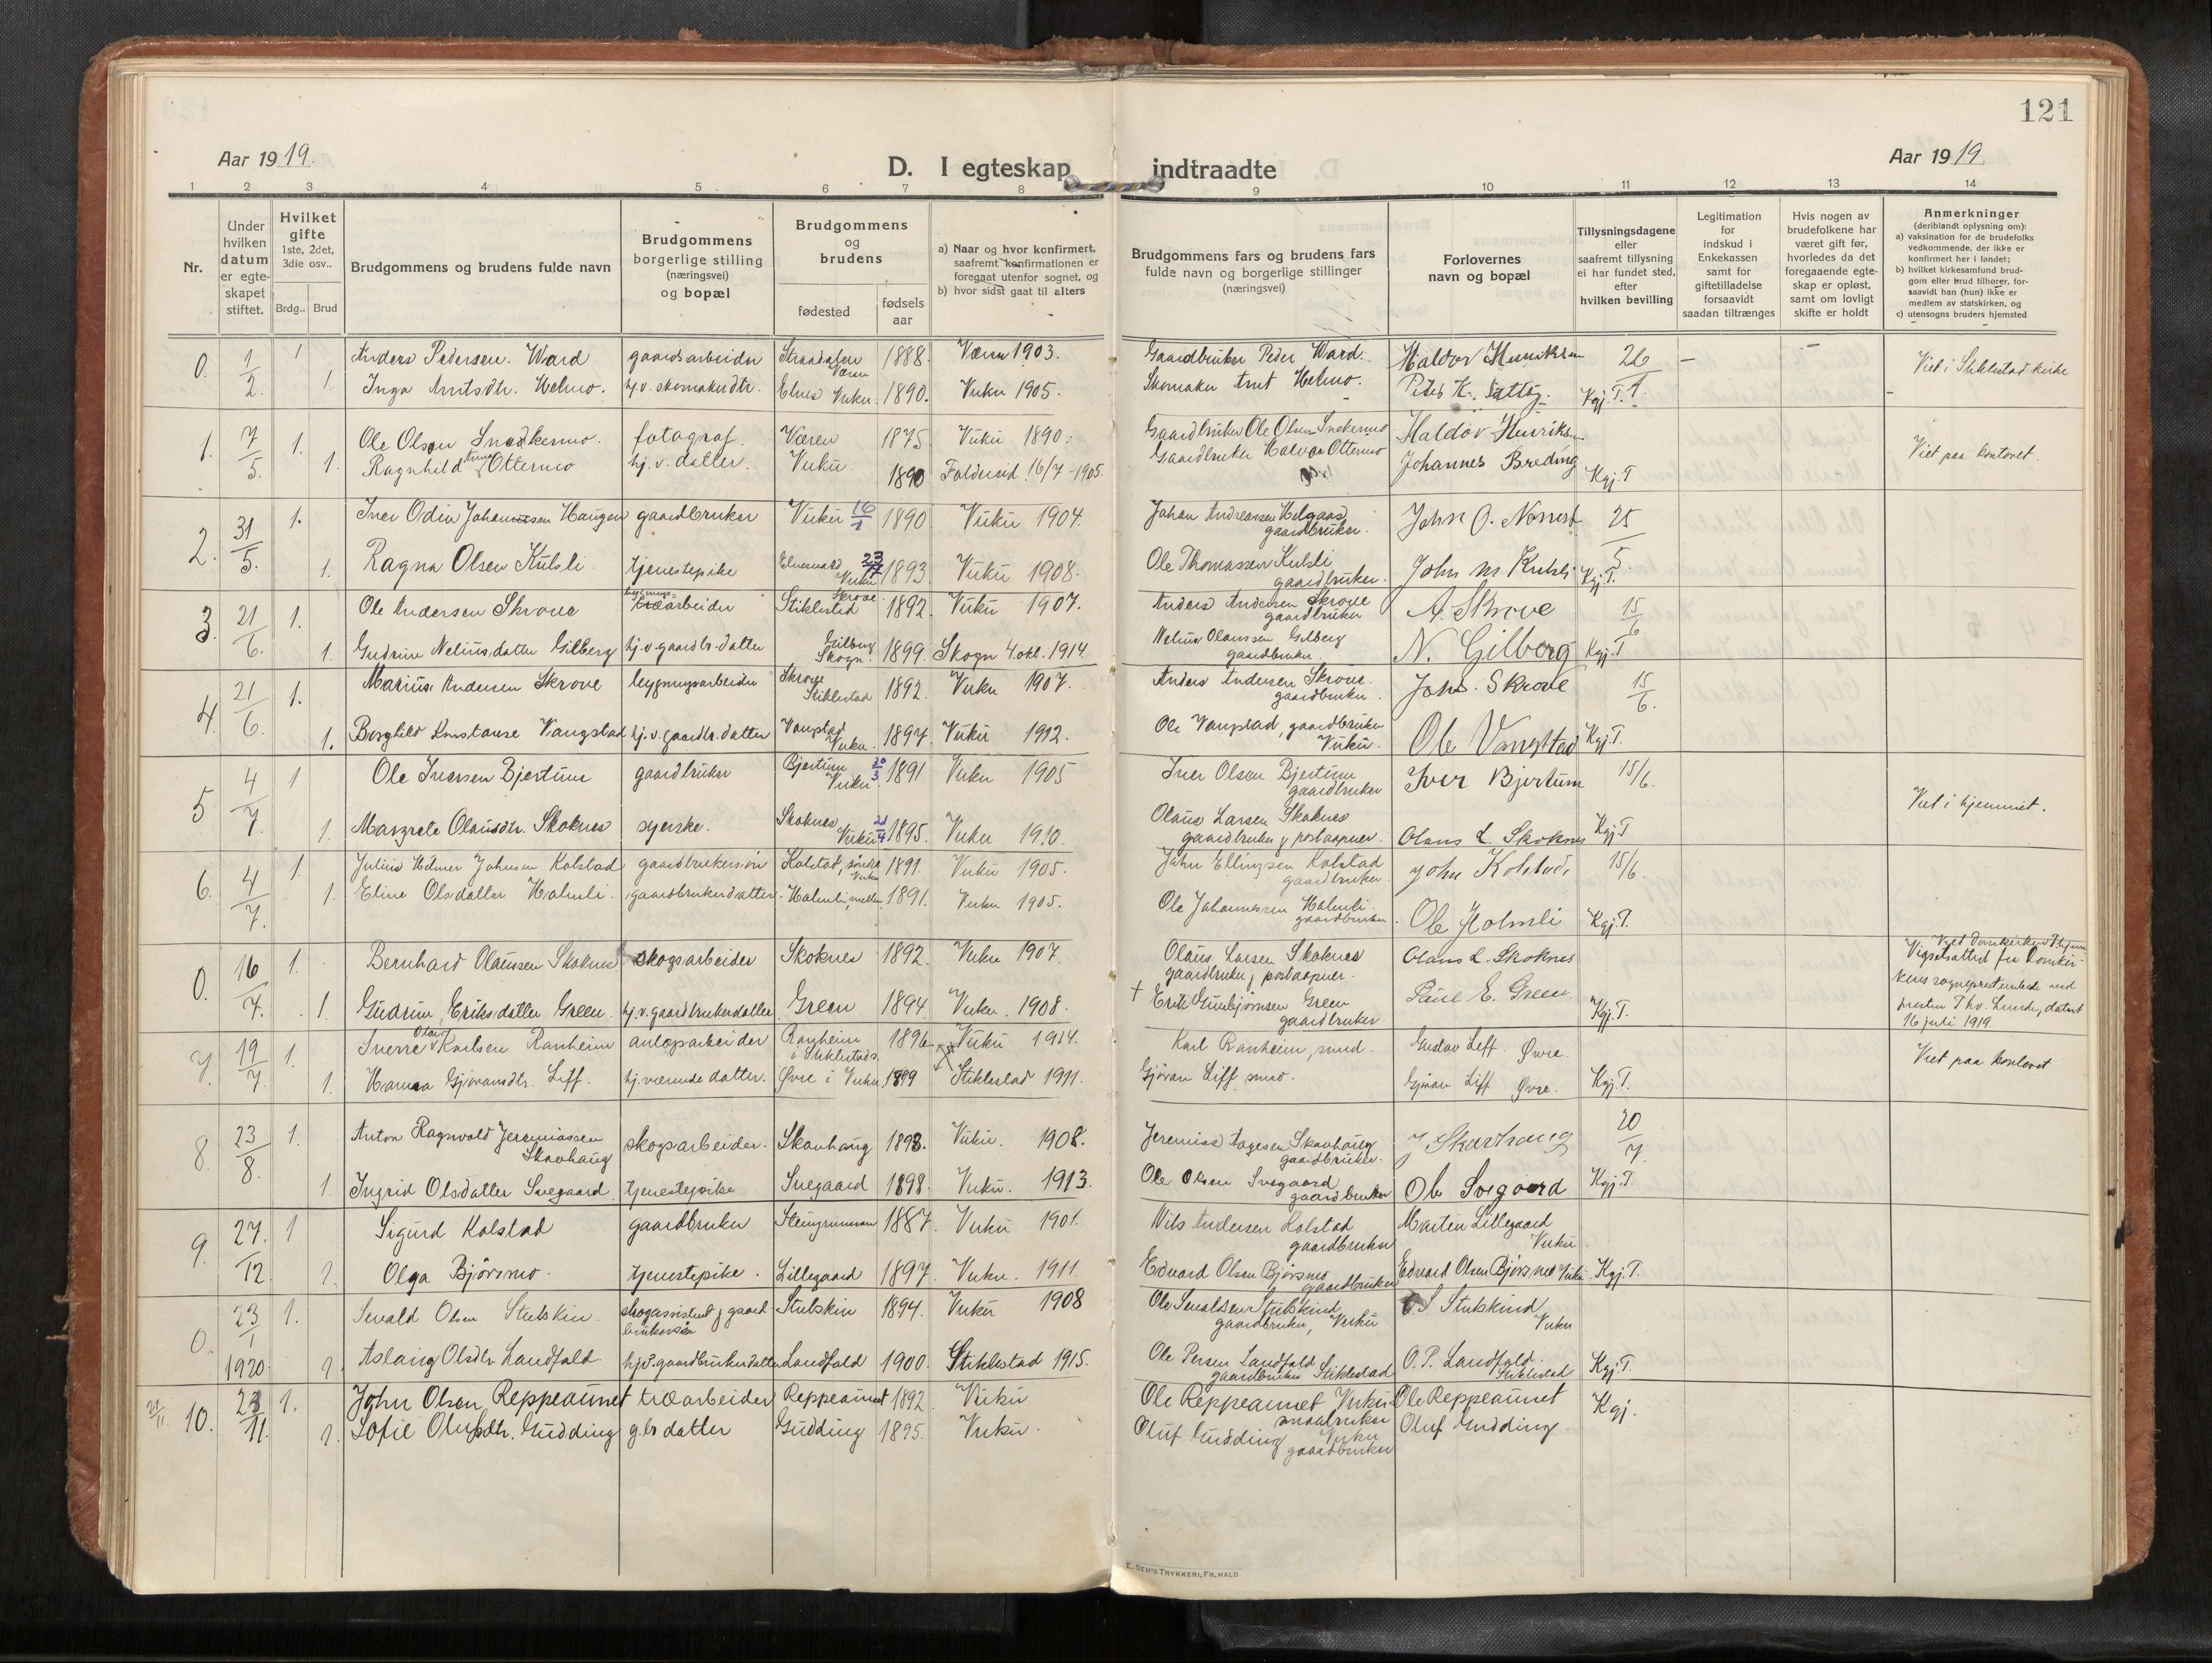 121
Aar 1919.
D. I egteskap indtraadte
Aar 1919.
1 2 3 4 5 6 7 8 9 10 11 12 13 14
Nr.
Under hvilken datum er egteskapet stiftet.
Hvilket gifte 1ste, 2det, 3die osv..
Brdg.. Brud
Brudgommens og brudens fulde navn
Brudgommens borgerlige stilling (næringsvei) og bopæl
Brudgommens og brudens
fødested
fødsels aar
a) Naar og hvor konfirmert, saafremt konfirmationen er foregaat utenfor sognet, og
b) hvor sidst gaat til alters
Brudgommens fars og brudens fars fulde navn og borgerlige stillinger (næringsvei)
Forlovernes navn og bopæl
Tillysningsdagene eller saafremt tillysning ei har fundet sted, efter hvilken bevilling
Legitimation for indskud i Enkekassen samt for giftetilladelse forsaavidt saadan tiltrænges
Hvis nogen av brudefolkene har været gift før, hvorledes da det foregaaende egteskap er opløst, samt om lovligt skifte er holdt
Anmerkninger (deriblandt oplysning om):
a) vaksination for de brudefolks vedkommende, der ikke er konfirmert her i landet;
b) hvilket kirkesamfund brudgom eller brud tilhører, forsaavidt han (hun) ikke er medlem av statskirken, og
c) utensogns bruders hjemsted
0. 1/2. 1 Anders Pedersen Ward gaardsarbeider Værn 1888. Værn 1903. Gaardbruker Peder Ward. Haldor Henriksen 26 – Viet i Stiklestad kirke
1. Inga Arntsdtr. Helmo. hj.v. skomakerdtr. Elnes Vuku. 1890. Vuku 1905. Skomaker Arnt Helmo. Kgj. T.
1. 7/5. 1. Ole Olsen Snekkermo. fotograf. Værn 1875 Vuku 1890. Gaardbruker Ole Olsen Snekermo Haldor Henriksen Viet paa kontoret.
1. Ragnhild Ottermo hj. v. datter. Vuku. 1890 16/7 - 1905. Gaardbruker Halvor Ottermo Johannes Breding Kgj. T
2. 31/5. 1. Iver Odin Johannesen Haugen gaardbruker Vuku 16/1 1890 Vuku 1904. Johan Andreassen Helgaas gaardbruker. 25/5.
1. Ragna Olsen Kulsli tjenestepike Vuku 1893 Vuku 1908. Ole Thomassen Kulsli gaardbruker. John M Kulsli Kgj. T.
3. 21/6. 1. Ole Andersen Skrove træarbeider Skrove Stiklestad 1892. Vuku 1907. Anders Andersen Skrove gaardbruker A. Skrove 15/6
1. Gudrun Neliusdatter Gilberg hj.v. gaardbr. datter Gilberg Skogn. 1899. Skogn 4. okt. 1914. Nelius Olaussen Gilberg gaardbruker. N. Gilberg Kgj. T
4. 21/6. 1. Marius Andersen Skrove bygningsarbeider Skrove Stiklestad 1892. Vuku 1907. Anders Andersen Skrove. gaardbruker. Johs. Skrove 15/6.
1. Borghild Konstanse Vangstad hj.v. gaardbr. datter Vangstad Vuku. 1897 Vuku 1912. Ole Vangstad, gaardbruker Vuku. Ole Vangstad Kgj. T.
5 4/7. 1 Ole Iversen Bjertum gaardbruker Bjertum Vuku 20/3 1891 Vuku 1905 Iver Olsen Bjertum gaardbruker Iver Bjertum 15/6. Viet i hjemmet.
1. Margrete Olausdtr. Skoknes syerske. Skoknes Vuku 1895. Vuku 1910. Olaus Larsen Skoknes gaardbruker & postaapner. Olaus L. Skoknes Kgj. T
6. 4/7. 1. Julius Helmer Johnsen Kolstad gaardbrukersøn Kolstad, søndre Vuku 1891. Vuku 1905. John Ellingsen Kolstad gaardbruker. John Kolstad. 15/6.
1. Eline Olsdatter Holmli. gaardbrukerdatter. Holmli, mellem 1891. Vuku 1905. Ole Johannessen Holmli. gaardbruker. Ole Holmli Kgj. T.
0. 16/7. 1. Bernhard Olaussen Skoknes skogsarbeider Skoknes 1892. Vuku 1907. Olaus Larsen Skoknes gaardbruker & postaapner. Olaus L. Skoknes Vigselsattest fra Domkirkens sogneprestembede ved presten Th. Lunde, datert 16 juli 1919
1. Gudrun Eriksdatter Green. hj.v. gaardbrukerdatter. Green 1894. Vuku. 1908. † Erik Gunbjørnsen Green gaardbruker. Paul E. Green. Kgj. T.
7. 19/7. 1. Sverre Olav Karlsen Ranheim anlegsarbeider Ranheim i Stiklestad. 1896. Vuku 1914. Karl Ranheim, smed. Gustav Leff. Øvre. Viet paa kontoret
1. Hanna Gjøransdtr. Leff. hj. værende datter. Øvre i Vuku 1899 Stiklestad 1911. Gjøran Liff smed. Gjøran Liff Øvre. Kgj. T.
8. 23/8. 1. Anton Ragnvald Jeremiassen Skavhaug skogsarbeider. Skavhaug 1893. Vuku. 1908. Jeremias Aagesen Skavhaug gaardbruker. J Skavhaug 20/7.
1. Ingrid Olsdatter Svegaard tjenestepike Svegaard 1898. Vuku. 1913. Ole Olsen Svegaard gaardbruker Ole Svegaard Kgj. T.
9. 27/12. 1 Sigurd Kolstad gaardbruker 1887. Vuku 1901. Nils Andersen Kolstad gaardbruker Martin Lillegaard Vuku
1. Olga Bjørsmo. tjenestepike. Lillegaard 1897. Vuku. 1911. Edvard Olsen Bjørsmo gaardbruker Edvard Olsen Bjørsmo Vuku Kgj. T.
0. 23/1 1920 1. Sevald Olsen Stubskin. skogassistent & gaardbrukersøn Stubskin 1894. Vuku 1908 Ole Sevaldsen Stubskind gaardbruker, Vuku O S Stubskind Vuku
1. Aslaug Olsdtr Landfald hjv. gaardbrukerdatter Landfald 1900. Stiklestad 1915. Ole Persen Landfald gaardbruker Stiklestad O. P. Landfald. Stiklestad Kgj. T.
22/11. 10. 23/11. 1. John Olsen Reppeaunet træarbeider Reppeaunet 1892. Vuku Ole Reppeaunet Vuku smaabruker Ole Reppeaunet Kgj.
1. Sofie Olufsdtr. Gudding g.br datter Gudding 1895. Vuku. Oluf Gudding Vuku gaardbruker Oluf Gudding
E. SEM'S TRYKKERI, FR.HALD